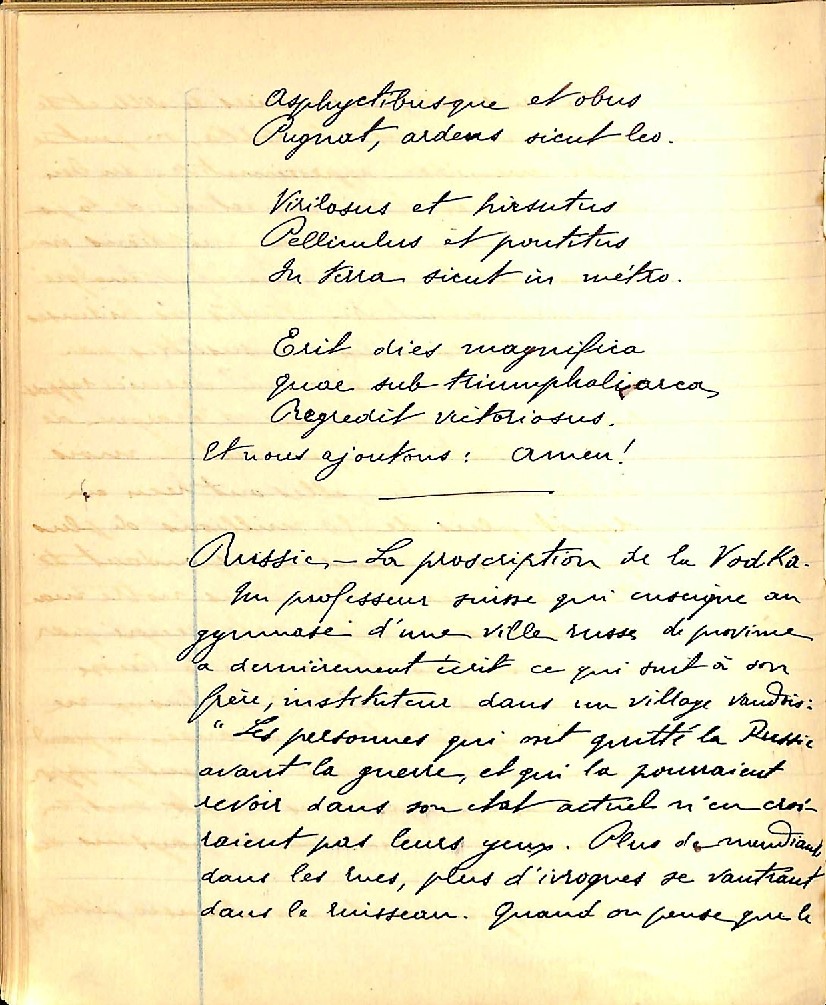 Asphyctibusque et obus
Pugnat, ardens sicut leo.
Virilosus et hirsutus
Pelliculus et poutitus
In terra sicut in métro.
Erit dies magnifica
quae sub triumphali arca
Regredit victoriosus.
Et nous ajoutons : Amen!
Russie. — La proscription de la Vodka.
Un professeur suisse qui enseigne au
gymnase d'une ville russe de province
a dernièrement écrit ce qui suit à son
frère, instituteur dans un village vaudois :
"Les personnes qui ont quitté la Russie
avant la guerre, et qui la pourraient
revoir dans son état actuel n'en croi-
raient pas leurs yeux. Plus de mendiants
dans les rues, plus d'ivrognes se vautrant
dans le ruisseau. Quand on pense que le